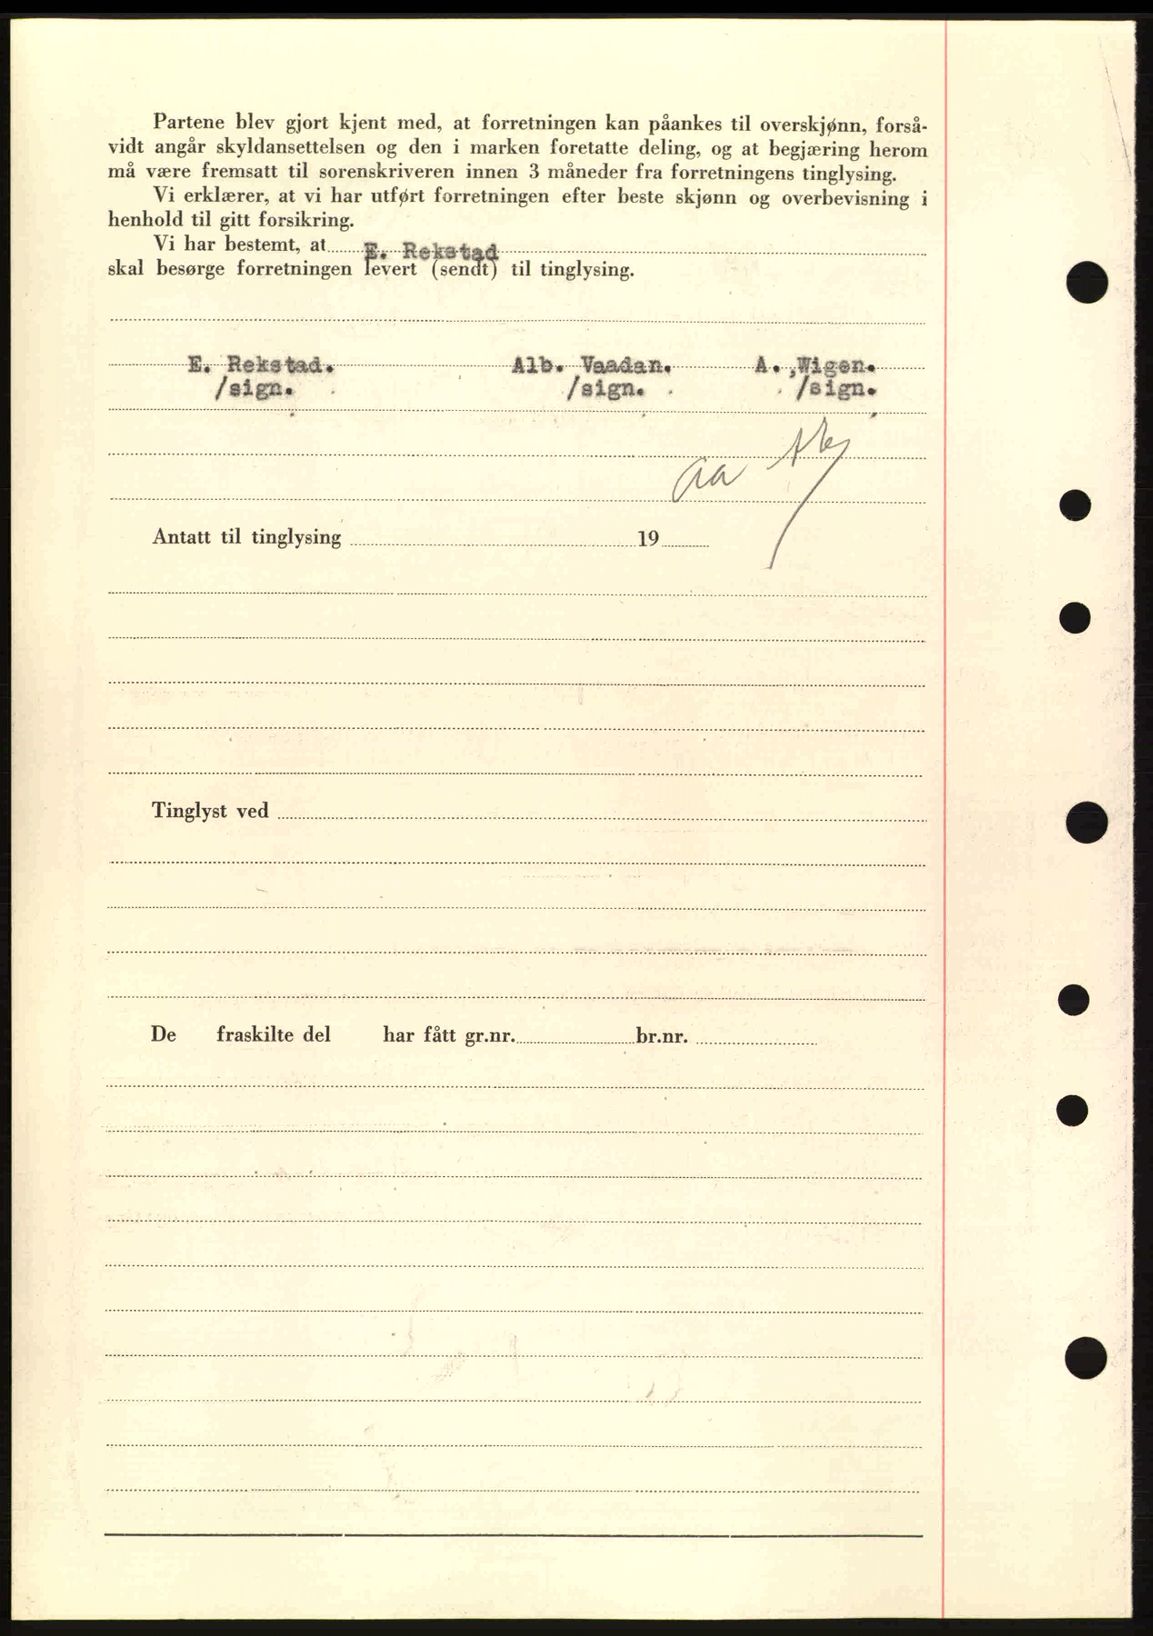 Partene blev gjort kjent med, at forretningen kan påankes til overskjønn, forså-
vidt angår skyldansettelsen og den i marken foretatte deling, og at begjæring herom
må være fremsatt til sorenskriveren innen 3 måneder fra forretningens tinglysing.
Vi erklærer, at vi har utført forretningen efter beste skjønn og overbevisning i
henhold til gitt forsikring.
Vi har bestemt, at E. Rekstad
skal besørge forretningen levert (sendt) til tinglysing.
E. Rekstad. Alb. Vaadan. A. ,Wigen.
/sign. /sign. /sign.
Antatt til tinglysing 19
Tinglyst ved
De fraskilte del har fått gr.nr. br.nr.